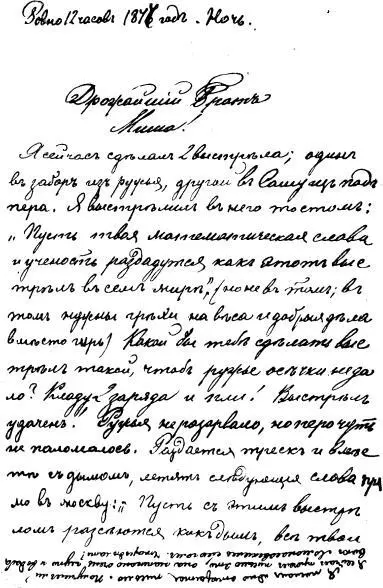 Ровно 12 часовъ 1877 годъ. Ночь.
Дрожайшій Братъ
Миша!
Я сейчасъ сдѣлалъ 2 выстрѣла; одинъ
въ заборъ изъ ружья, другой въ Сашу изъ под
пера. Я выстрѣлилъ въ него тостомъ:
„Пусть твая математическая слава
и ученость раздадутся какъ этотъ выс
трѣлъ въ семъ мирѣ", (но не в томъ; въ
томъ нужны грѣхи на вѣса и добрыя дѣла
вмѣсто гирь) Какой бы тебѣ сдѣлать выс
трѣлъ такой, чтобъ ружье осѣчки не да
ло? Кладу 2 заряда и пли! Выстрѣлъ
удаченъ! Ружья не розарвало, но перо чуть
не поломалось. Раздается трескъ и вмѣс
те съ дымомъ, летятъ слѣдующія слова пря
мо в москву: „Пусть с этимъ выстрѣ
ломъ разсѣются какъ дымъ, всѣ твои